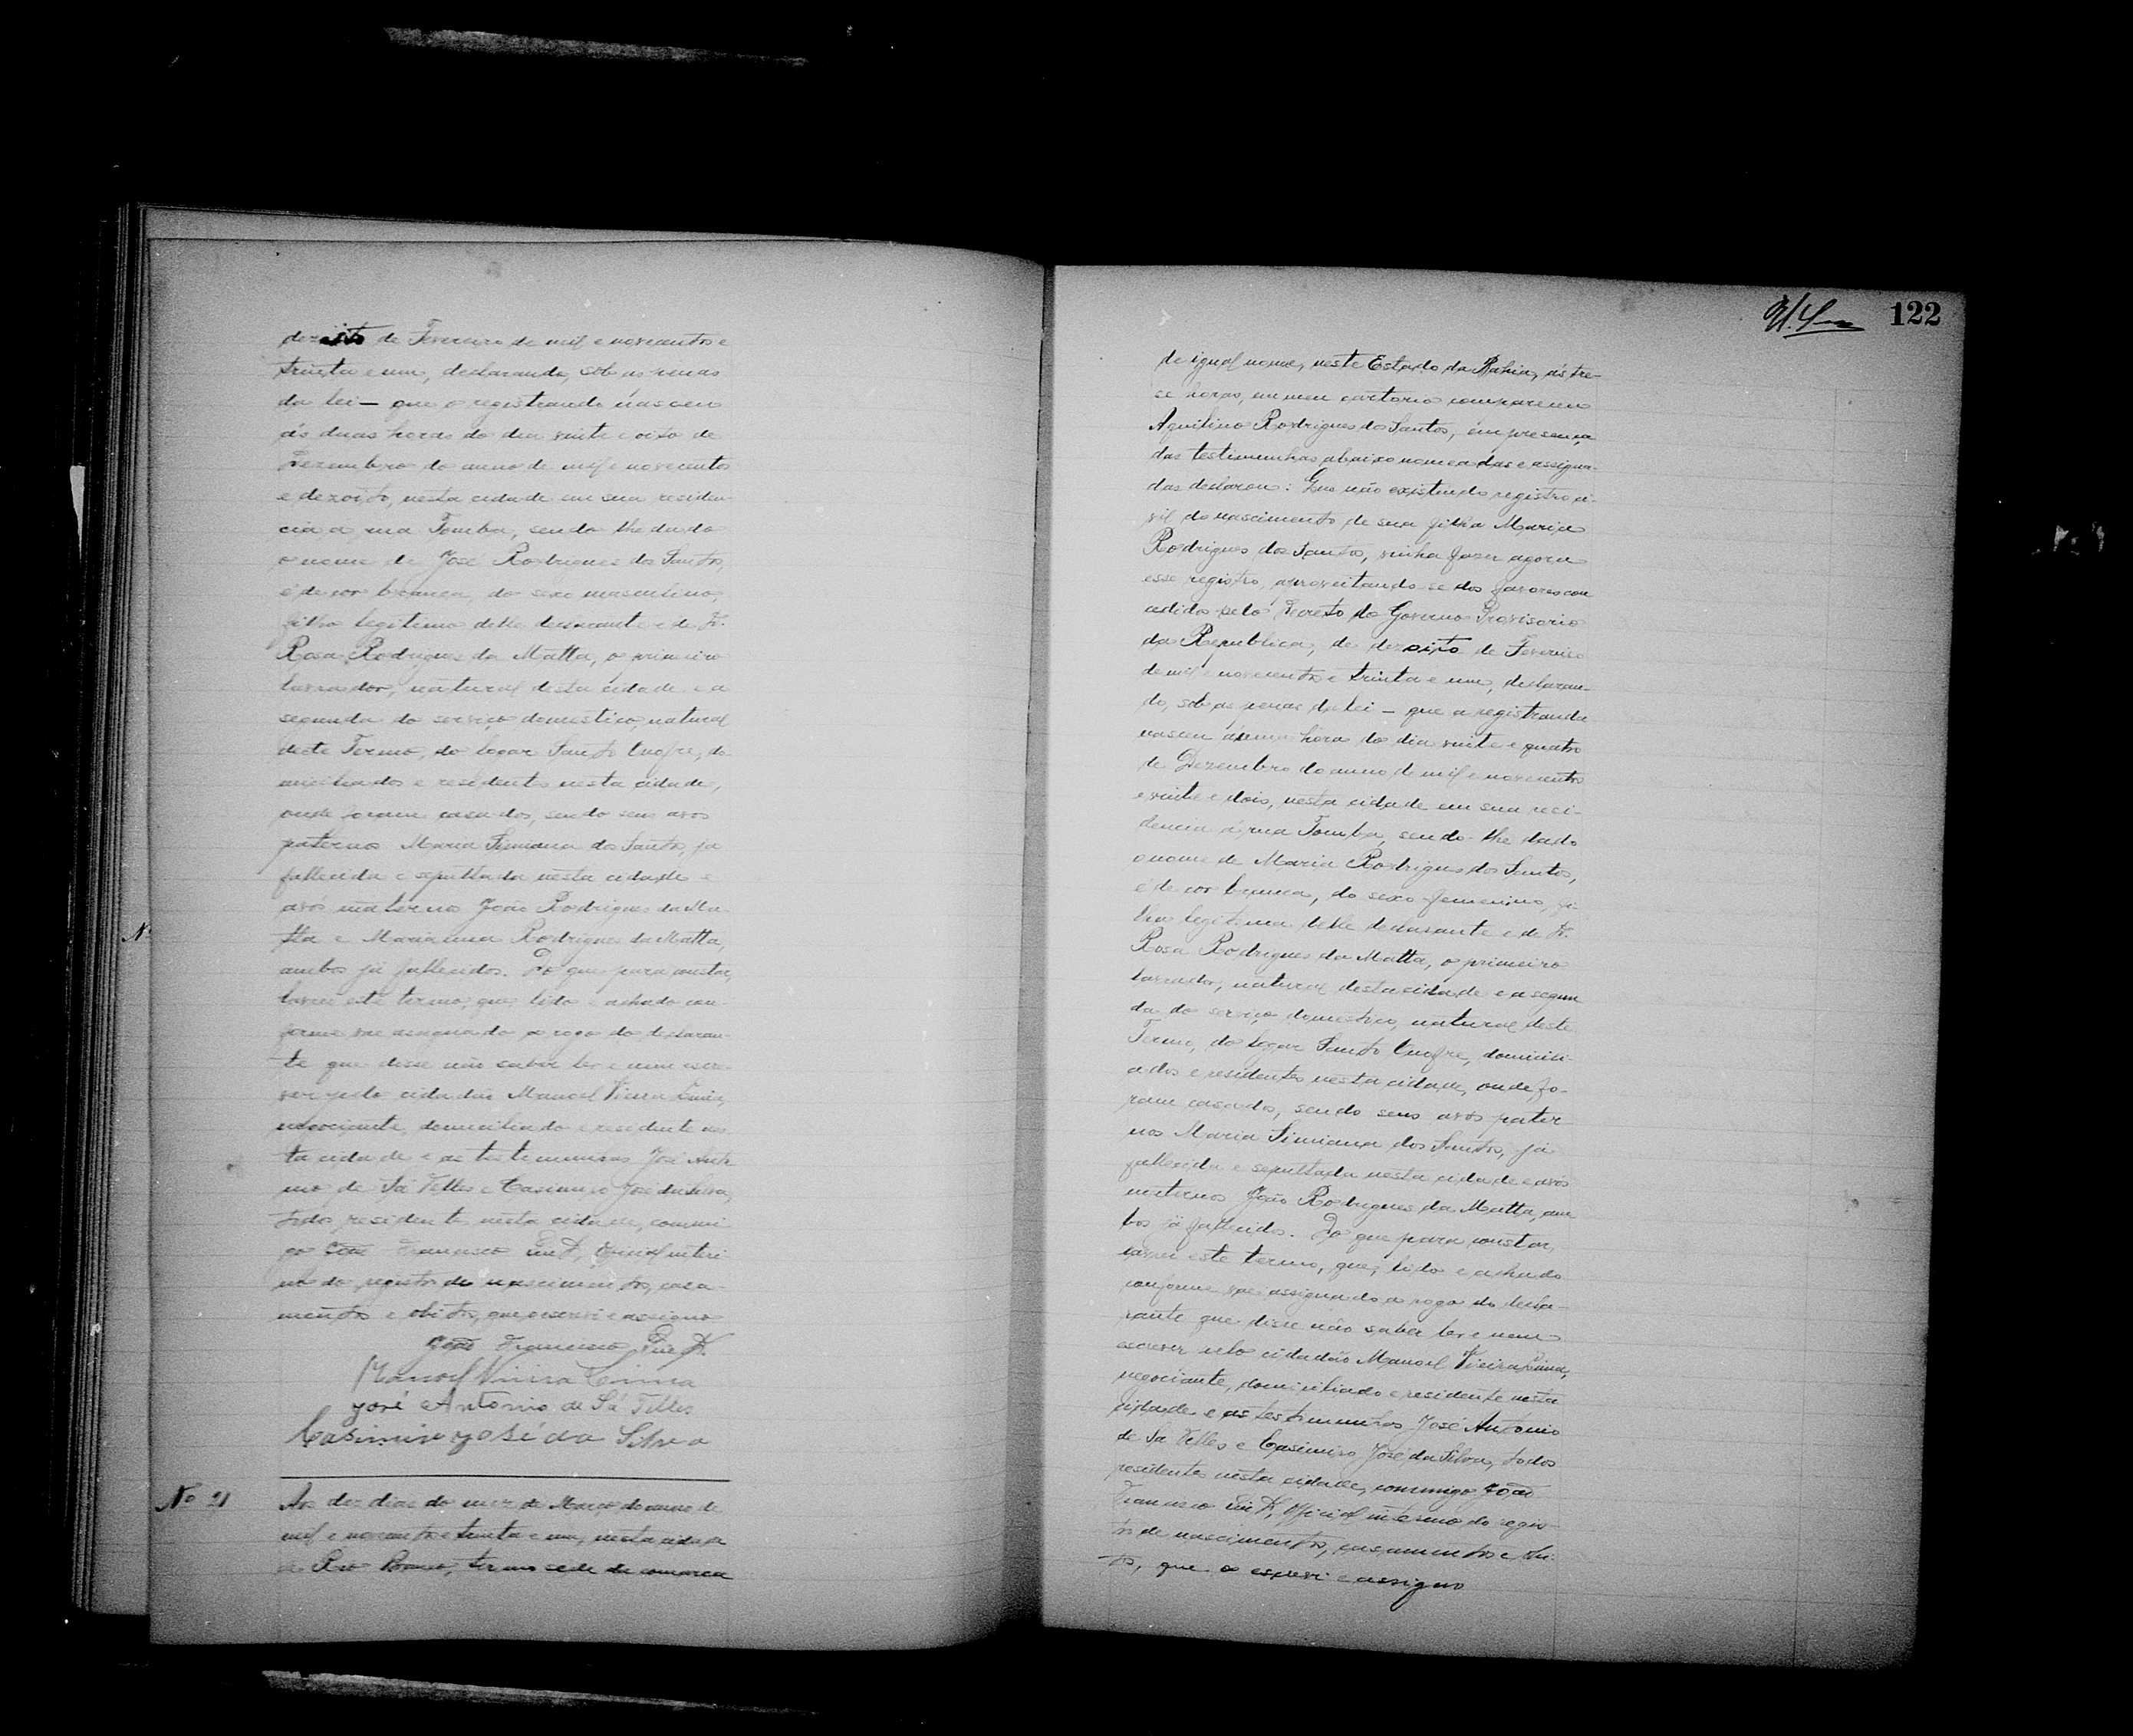 dezoito de Fevereiro de mil e novecentos e
trinta e um, declarando, sob as penas
da lei — que o registrando nasceu
ás duas horas do dia vinte e oito de
Dezembro do anno de mil e novecentos
e dezoito, nesta cidade em sua residen-
cia a rua Tomba, sendo-lhe dado
o nome de José Rodrigues dos Santos,
é de cor branca, do sexo masculino,
filho legitimo delle declarante e de D.
Rosa Rodrigues da Matta, o primeiro
lavrador, natural desta cidade e a
segunda do serviço domestico, natural
deste Termo, do logar Santo Onofre, do-
miciliados e residentes nesta cidade,
onde foram casados, sendo seus avos
paternos Maria Simiana dos Santos, já
fallecida e sepultada nesta cidade e
avós maternos João Rodrigues da Ma-
tta e Marianna Rodrigues da Matta,
ambos já fallecidos. Do que para constar,
lavrei este termo, que, lido e achado con-
forme vae assignado a rogo do declaran-
te que disse não saber ler e nem escre-
ver pelo cidadão Manoel Vieira Lima,
negociante, domiciliado e residente nes-
ta cidade e as testemunhas José Anto-
nio de Sá Telles e Casimiro José da Silva,
todos residentes nesta cidade, commi-
go João Francisco official interi-
no do registro de nascimentos, casa-
mentos e obitos, que o escrevi e assigno
João Francisco
Manoel Vieira Lima
José Antonio de Sá Telles
Casimiro José da Silva
Nº 21
Aos dez dias do mez de Março do anno de
mil e novecentos e trinta e um, nesta cidade
de Rio Branco, termo sede da comarca
122
de igual nome, neste Estado da Bahia, ás tre-
se horas, em meu cartorio compareceu
Aquilino Rodrigues dos Santos, em presença
das testimunhas abaixo nomeadas e assigna-
das declarou: Que não existindo registro ci-
vil do nascimento de sua filha Maria
Rodrigues dos Santos, vinha fazer agora
esse registro, aproveitando-se dos favores con
cedidos pelo Decreto do Governo Provisorio
da Republica, de dezoito de Fevereiro
de mil e novecentos e trinta e um, declaran-
do, sob as penas da lei — que a registranda
nasceu á uma hora do dia vinte e quatro
de Dezembro do anno de mil e novecentos
e vinte e dois, nesta cidade em sua resi-
dencia á rua Tomba, sendo-lhe dado
o nome de Maria Rodrigues dos Santos,
é de cor branca, do sexo femenino, fi-
lha legitima delle declarante e de D.
Rosa Rodrigues da Matta, o primeiro
lavrador, natural desta cidade e a segun
da do serviço domestico, natural deste
Termo, do logar Santo Onofre, domicili-
ados e residentes nesta cidade, onde fo-
ram casados, sendo seus avós pater
nos Maria Simiana dos Santos, já
fallecida e sepultada nesta cidade e avós
maternos João Rodrigues da Matta, am
bos já fallecidos. Do que para constar,
lavrei este termo, que, lido e achado
conforme vae assignado a rogo do decla-
rante que disse não saber ler e nem
escrever pelo cidadão Manoel Vieira Lima,
negociante, domiciliado e residente nesta
cidade e as testimunhas José Antonio
de Sá Telles e Casimiro José da Silva, todos
residentes nesta cidade, commigo João
Francisco official interino do regis-
tro de nascimentos, casamentos e obi-
tos, que o escrevi e assigno